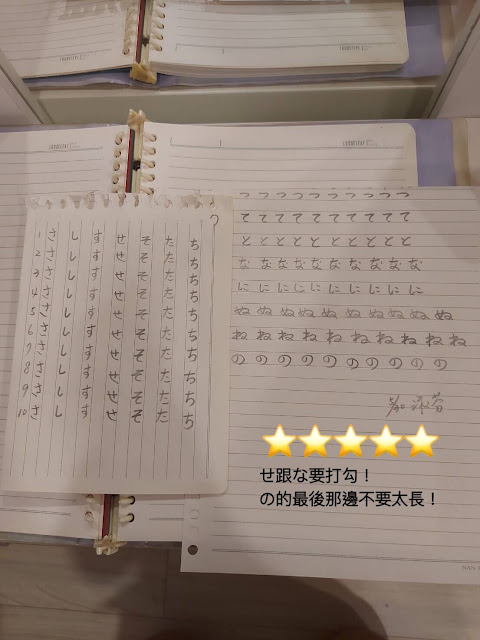 1 さ し す せ そ た ち
2 さ し す せ そ た ち
3 さ し す せ そ た ち
4 さ し す せ そ た ち
5 さ し す せ そ た ち
6 さ し す せ そ た ち
7 さ し す せ そ た ち
8 さ し す せ そ た ち
9 さ し す せ そ た ち
10 さ し す せ そ た ち
つ つ つ つ つ つ つ つ つ つ
て て て て て て て て て て
と と と と と と と と と と
な な な な な な な な な な
に に に に に に に に に に
ぬ ぬ ぬ ぬ ぬ ぬ ぬ ぬ ぬ ぬ
ね ね ね ね ね ね ね ね ね ね
の の の の の の の の の
せ跟な要打勾！
の的最後那邊不要太長！